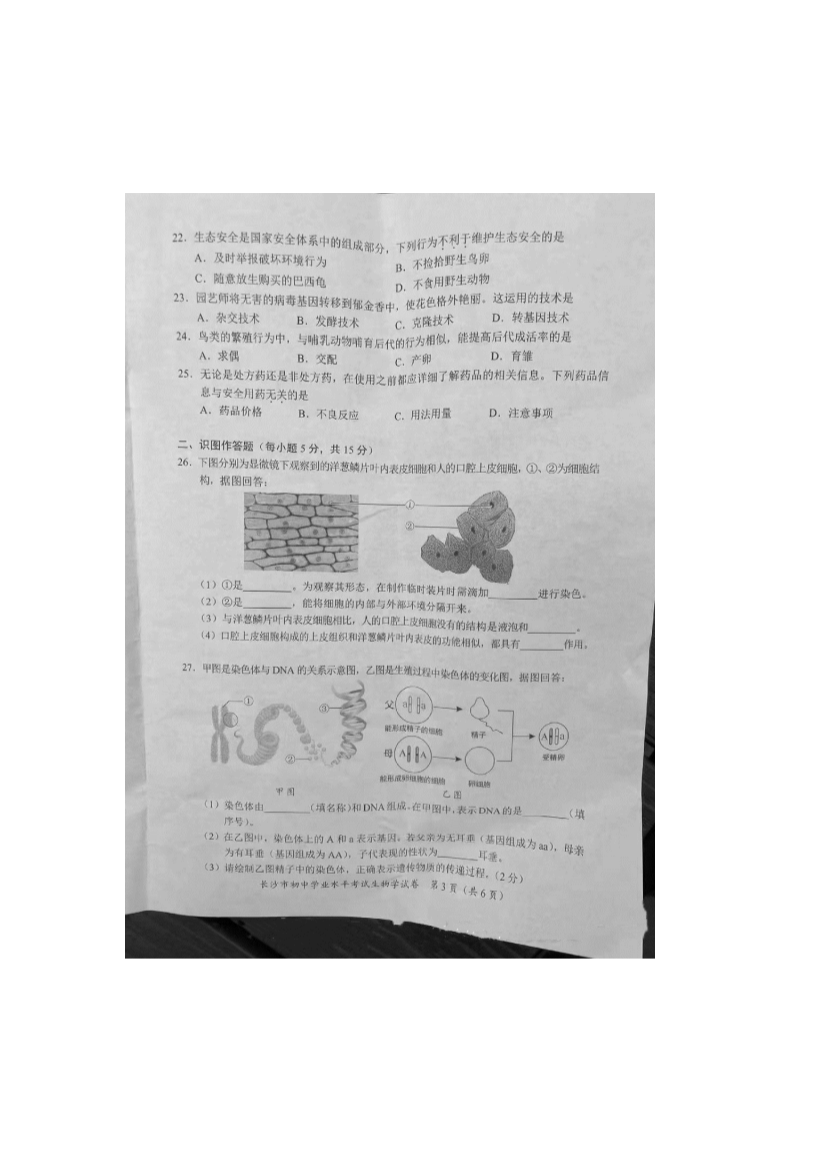 22．生态安全是国家安全体系中的组成部分，下列行为不利于维护生态安全的是
A．及时举报破坏环境行为 B．不捡拾野生鸟卵
C．随意放生购买的巴西龟 D．不食用野生动物
23．园艺师将无害的病毒基因转移到郁金香中，使花色格外艳丽。这运用的技术是
A．杂交技术 B．发酵技术 C．克隆技术 D．转基因技术
24．鸟类的繁殖行为中，与哺乳动物哺育后代的行为相似，能提高后代成活率的是
A．求偶 B．交配 C．产卵 D．育雏
25．无论是处方药还是非处方药，在使用之前都应详细了解药品的相关信息。下列药品信
息与安全用药无关的是
A．药品价格 B．不良反应 C．用法用量 D．注意事项
二、识图作答题（每小题5分，共15分）
26．下图分别为显微镜下观察到的洋葱鳞片叶内表皮细胞和人的口腔上皮细胞，①、②为细胞结
构，据图回答：
①
②
（1）①是________。为观察其形态，在制作临时装片时需滴加________进行染色。
（2）②是________，能将细胞的内部与外部环境分隔开来。
（3）与洋葱鳞片叶内表皮细胞相比，人的口腔上皮细胞没有的结构是液泡和________。
（4）口腔上皮细胞构成的上皮组织和洋葱鳞片叶内表皮的功能相似，都具有_______作用。
27．甲图是染色体与DNA的关系示意图，乙图是生殖过程中染色体的变化图，据图回答：
① ③ 父 a a
能形成精子的细胞 精子
A a
受精卵
② 母 A A
能形成卵细胞的细胞 卵细胞
甲图 乙图
（1）染色体由_______（填名称）和DNA组成，在甲图中，表示DNA的是_______（填
序号）。
（2）在乙图中，染色体上的A和a表示基因，若父亲为无耳垂（基因组成为aa），母亲
为有耳垂（基因组成为AA），子代表现的性状为______耳垂。
（3）请绘制乙图精子中的染色体，正确表示遗传物质的传递过程。（2分）
长沙市初中学业水平考试生物学试卷 第3页（共6页）